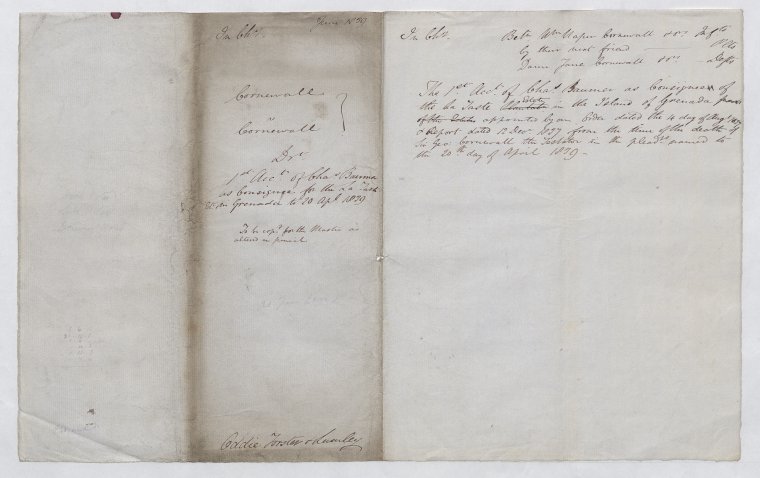 In Chy.
June 1829
Cornewall
v
Cornewall
Dft
1st Acct of Chas Baumer
as Consignee for the La Taste
Est in Grenada to 20 Apl 1829
To be copd for the Master as
altered in pencil
Oddie Forster & Lumley
In Chy.
Betn Wm Naper Cornewall & ors Infts
by their next friend Plts
Dame Jane Cornewall & ors Defts
The 1st Acct of Chas Baumer as Consignee of
the La Taste Estate in the Island of Grenada
of the appointed by an Order dated the 4 day of Augt 1827
& Report dated 12 Decr 1827 from the time of the death of
Sir Geo: Cornewall the Testator in the pleadgs named to
the 20th day of April 1829